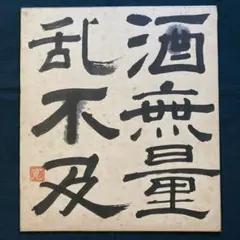 酒無量
乱不及